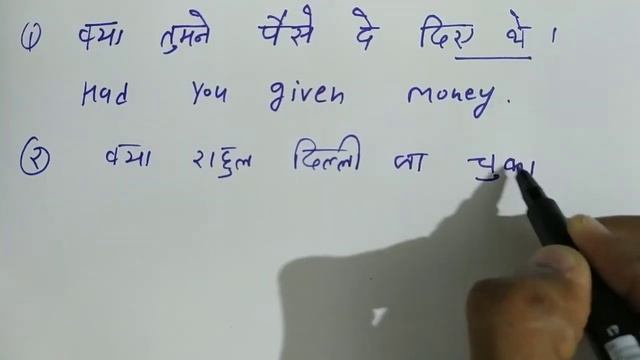 ① क्या तुमने पैसे दे दिए थे ।
Had You given money.
② क्या राहुल दिल्ली जा चुका